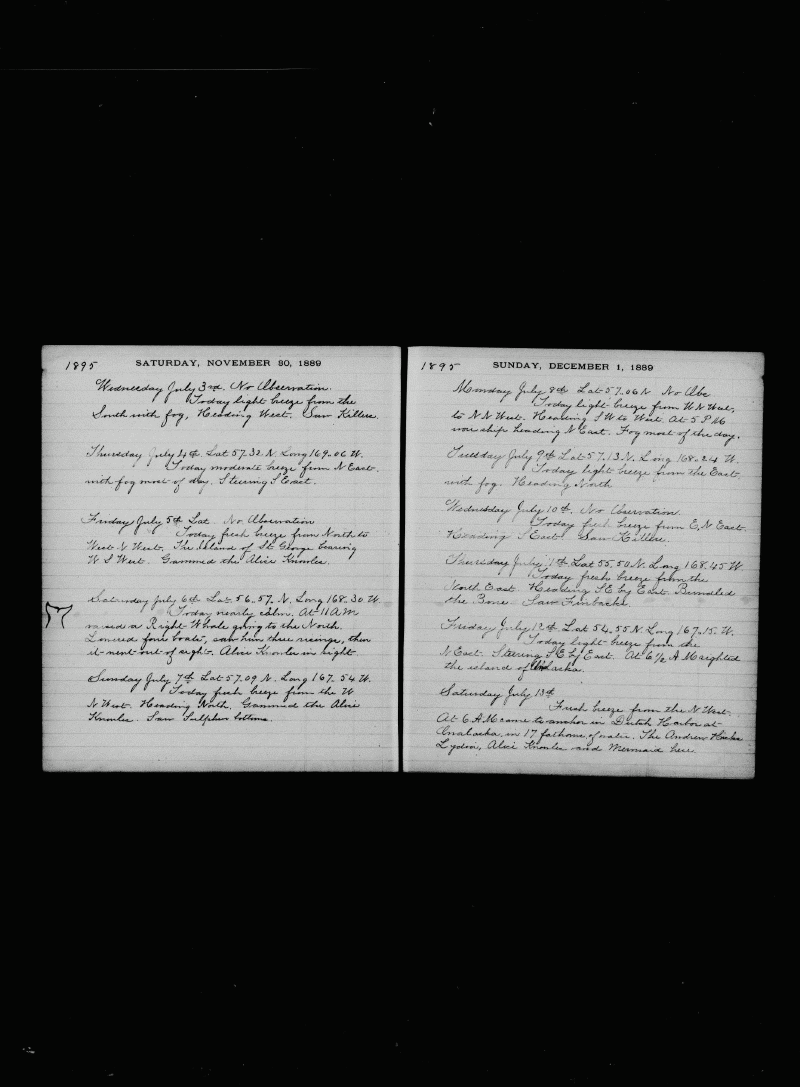 1895 SATURDAY, NOVEMBER 30, 1889
Wednesday July 3rd. No Observation.
Today light breeze from the
South with fog, Heading West. Saw Killers.
Thursday July 4th Lat 57.32. N. Long 169.06 W.
Today moderate breeze from N East.
with fog most of day. Steering S East.
Friday July 5th Lat No Observation
Today fresh breeze from North to
West N West. The island of St George bearing
W S West. Gammed the Alice Knowles.
Saturday July 6th Lat 56.57. N. Long 168.30 W.
Today nearly calm. At 11 A M
raised a Right Whale going to the North.
Lowered four boats, saw him three risings, then
it went out of sight. Alice Knowles in sight.
Sunday July 7th Lat 57.09 N. Long 167.54 W.
Today fresh breeze from the W
N West. Heading North. Gammed the Alice
Knowles. Saw Sulphur bottoms.
1895 SUNDAY, DECEMBER 1, 1889
Monday July 8th Lat 57.06 N No Obs
Today light breeze from W N West,
to N N West. Heading S W to West. At 5 P M
wore ship heading N East. Fog most of the day.
Tuesday July 9th Lat 57.13. N. Long 168.24 W.
Today light breeze from the East
with fog. Heading North
Wednesday July 10th. No Observation
Today fresh breeze from E, N East.
Heading S East. Saw Killers.
Thursday July 11th Lat 55.50 N. Long 168.45 W
Today fresh breeze from the
North East. Heading S E by East. Bundled
the Bone. Saw Finbacks.
Friday July 12th Lat 54.55 N. Long 167.15. W.
Today light breeze from the
N East. Steering S E by East. At 6 1/2 A M sighted
the island of Unlaska.
Saturday July 13th
Fresh breeze from the N West.
At 6 A M came to anchor in Dutch Harbor at
Onalaska, in 17 fathoms of water. The Andrew Hicks
Lydia, Alice Knowles and Mermaid here